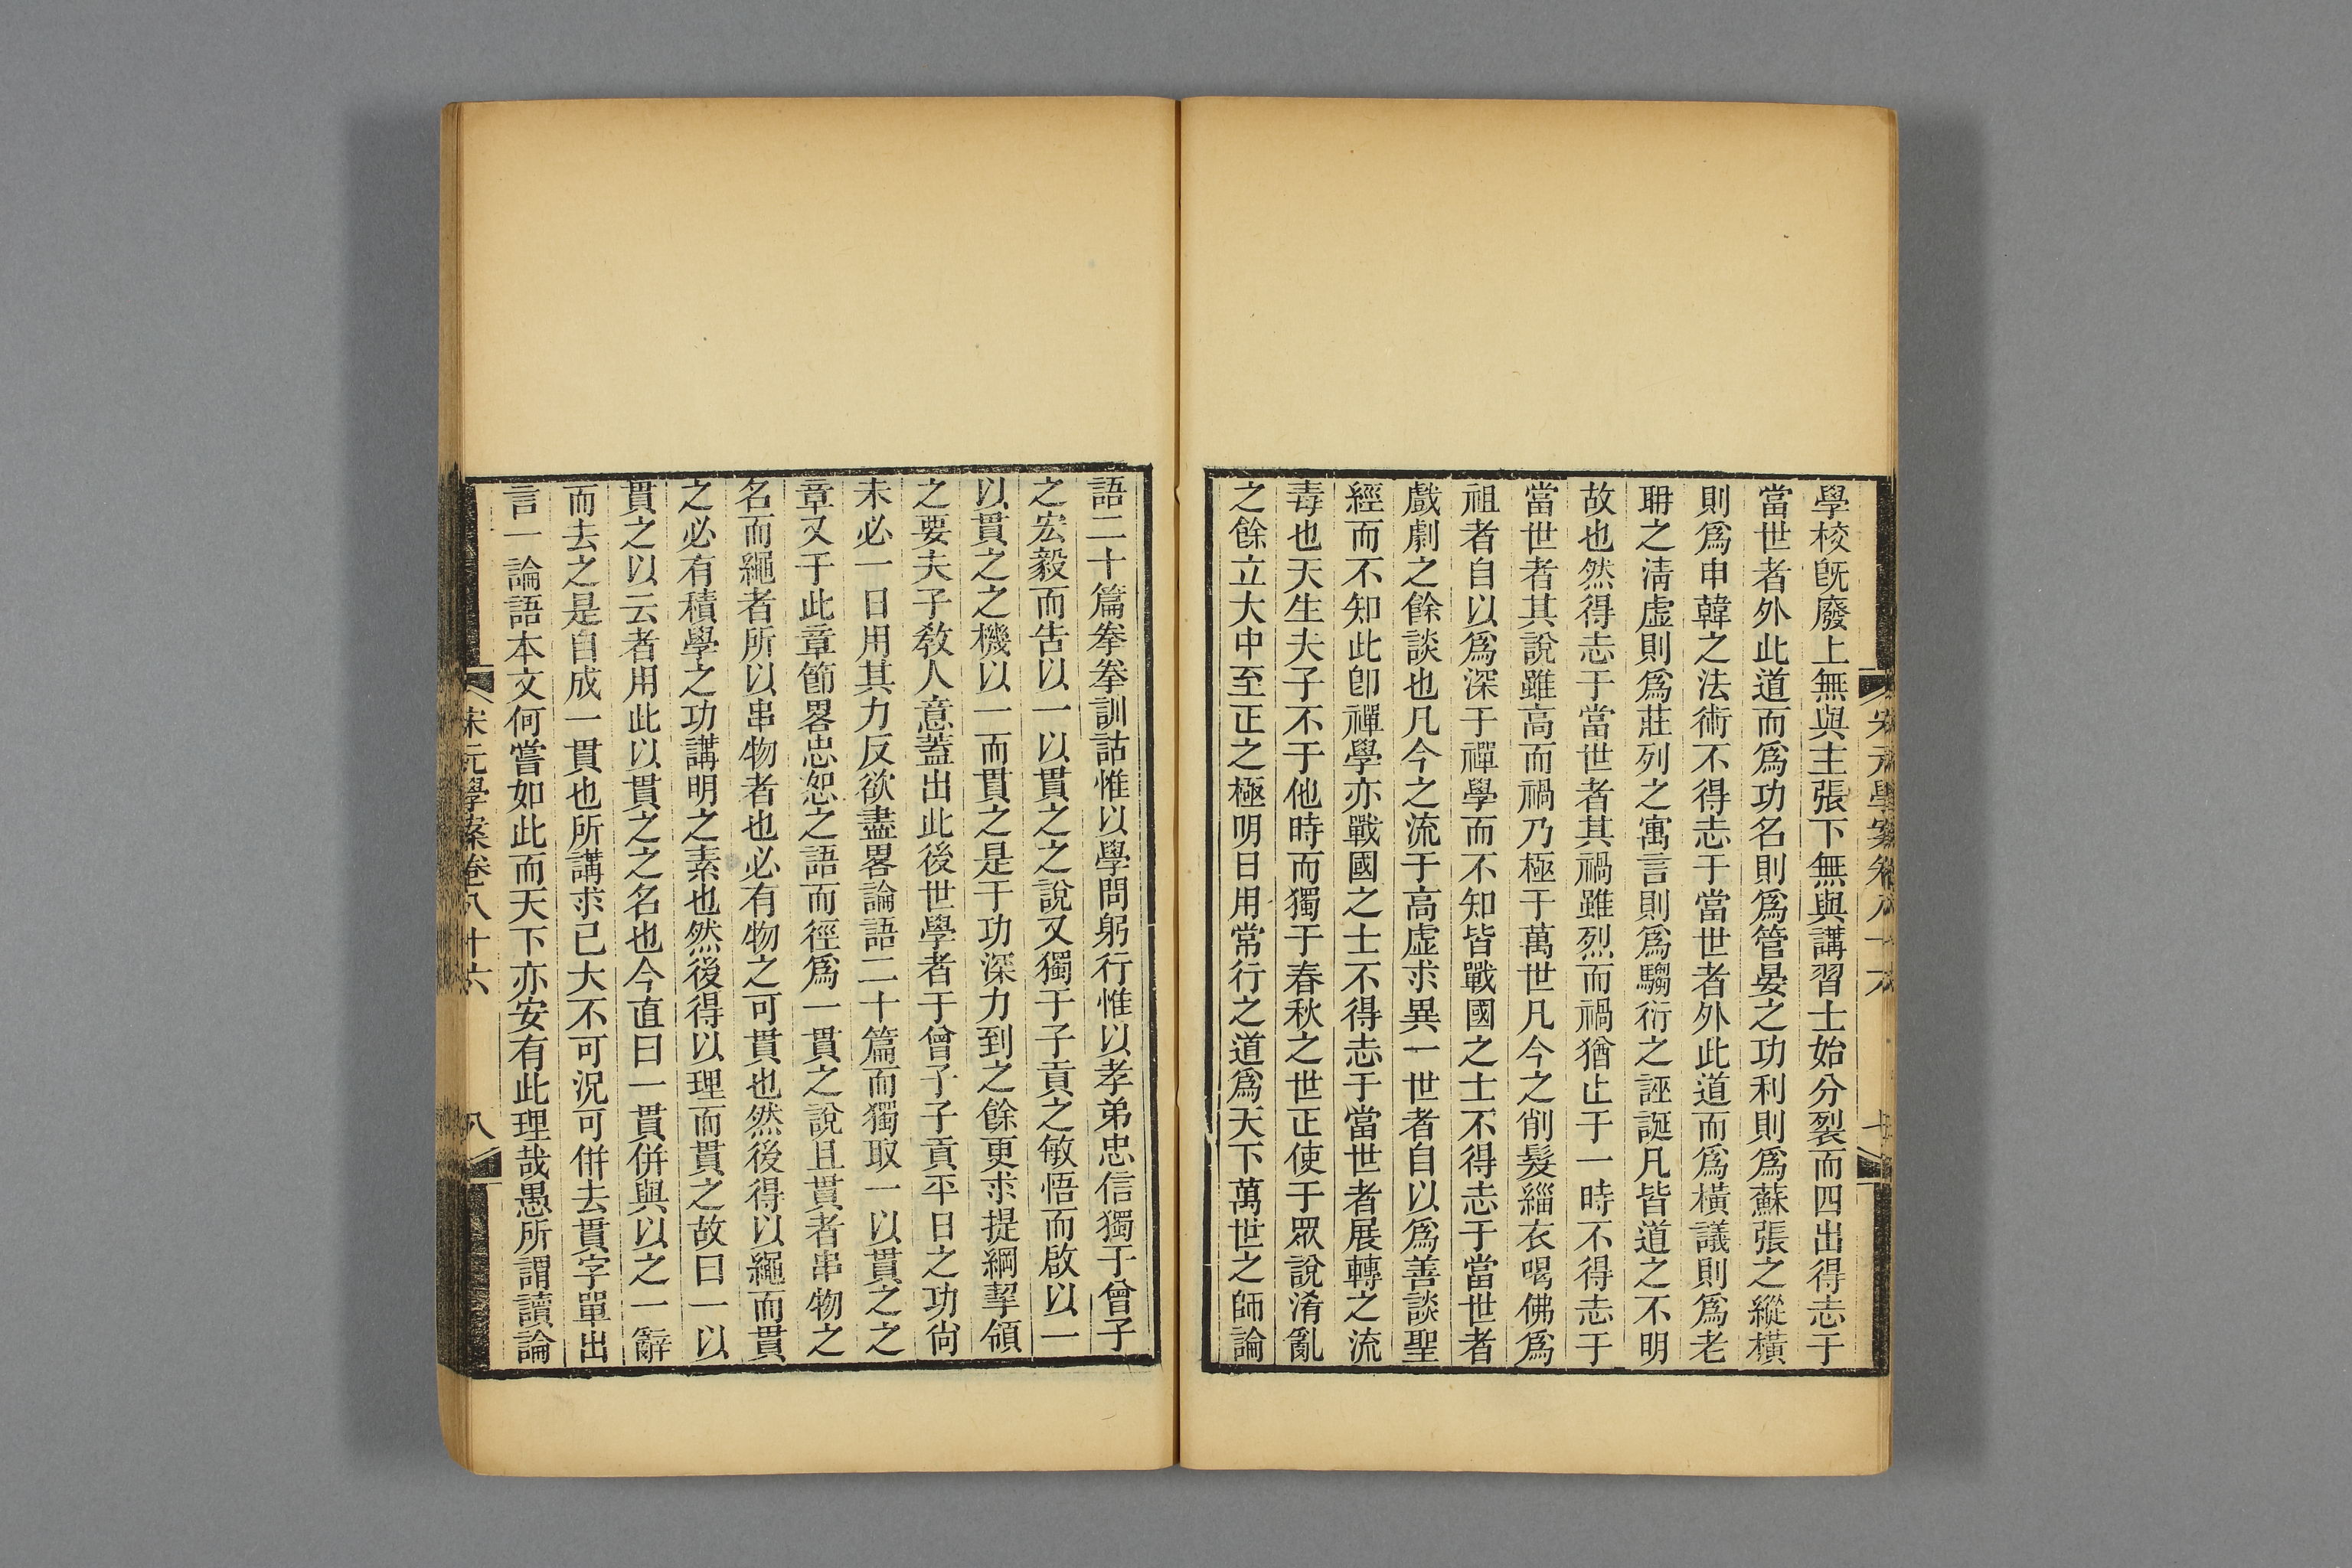 宋元學案卷八十六
七
學校旣廢上無與主張下無與講習士始分裂而四出得志于
當世者外此道而爲功名則爲管晏之功利則爲蘇張之縱橫
則爲申韓之法術不得志于當世者外此道而爲橫議則爲老
聃之淸虛則爲莊列之寓言則爲騶衍之誣誕凡皆道之不明
故也然得志于當世者其禍雖烈而禍猶止于一時不得志于
當世者其說雖高而禍乃極于萬世凡今之削髮緇衣喝佛爲
祖者自以爲深于禪學而不知皆戰國之士不得志于當世者
戲劇之餘談也凡今之流于高虛求異一世者自以爲善談聖
經而不知此卽禪學亦戰國之士不得志于當世者展轉之流
毒也天生夫子不于他時而獨于春秋之世正使于眾說淆亂
之餘立大中至正之極明日用常行之道爲天下萬世之師論
語二十篇拳拳訓詁惟以學問躬行惟以孝弟忠信獨于曾子
之宏毅而吿以一以貫之之說又獨于子貢之敏悟而啟以一
以貫之之機以一而貫之是于功深力到之餘更求提綱挈領
之要夫子敎人意蓋出此後世學者于曾子子貢平日之功尙
未必一日用其力反欲盡畧論語二十篇而獨取一以貫之之
章又于此章節畧忠恕之語而徑爲一貫之說且貫者串物之
名而繩者所以串物者也必有物之可貫也然後得以繩而貫
之必有積學之功講明之素也然後得以理而貫之故曰一以
貫之以云者用此以貫之之名也今直曰一貫併與以之一辭
而去之是自成一貫也所講求已大不可況可併去貫字單出
言一論語本文何嘗如此而天下亦安有此理哉愚所謂讀論
宋元學案卷八十六
八